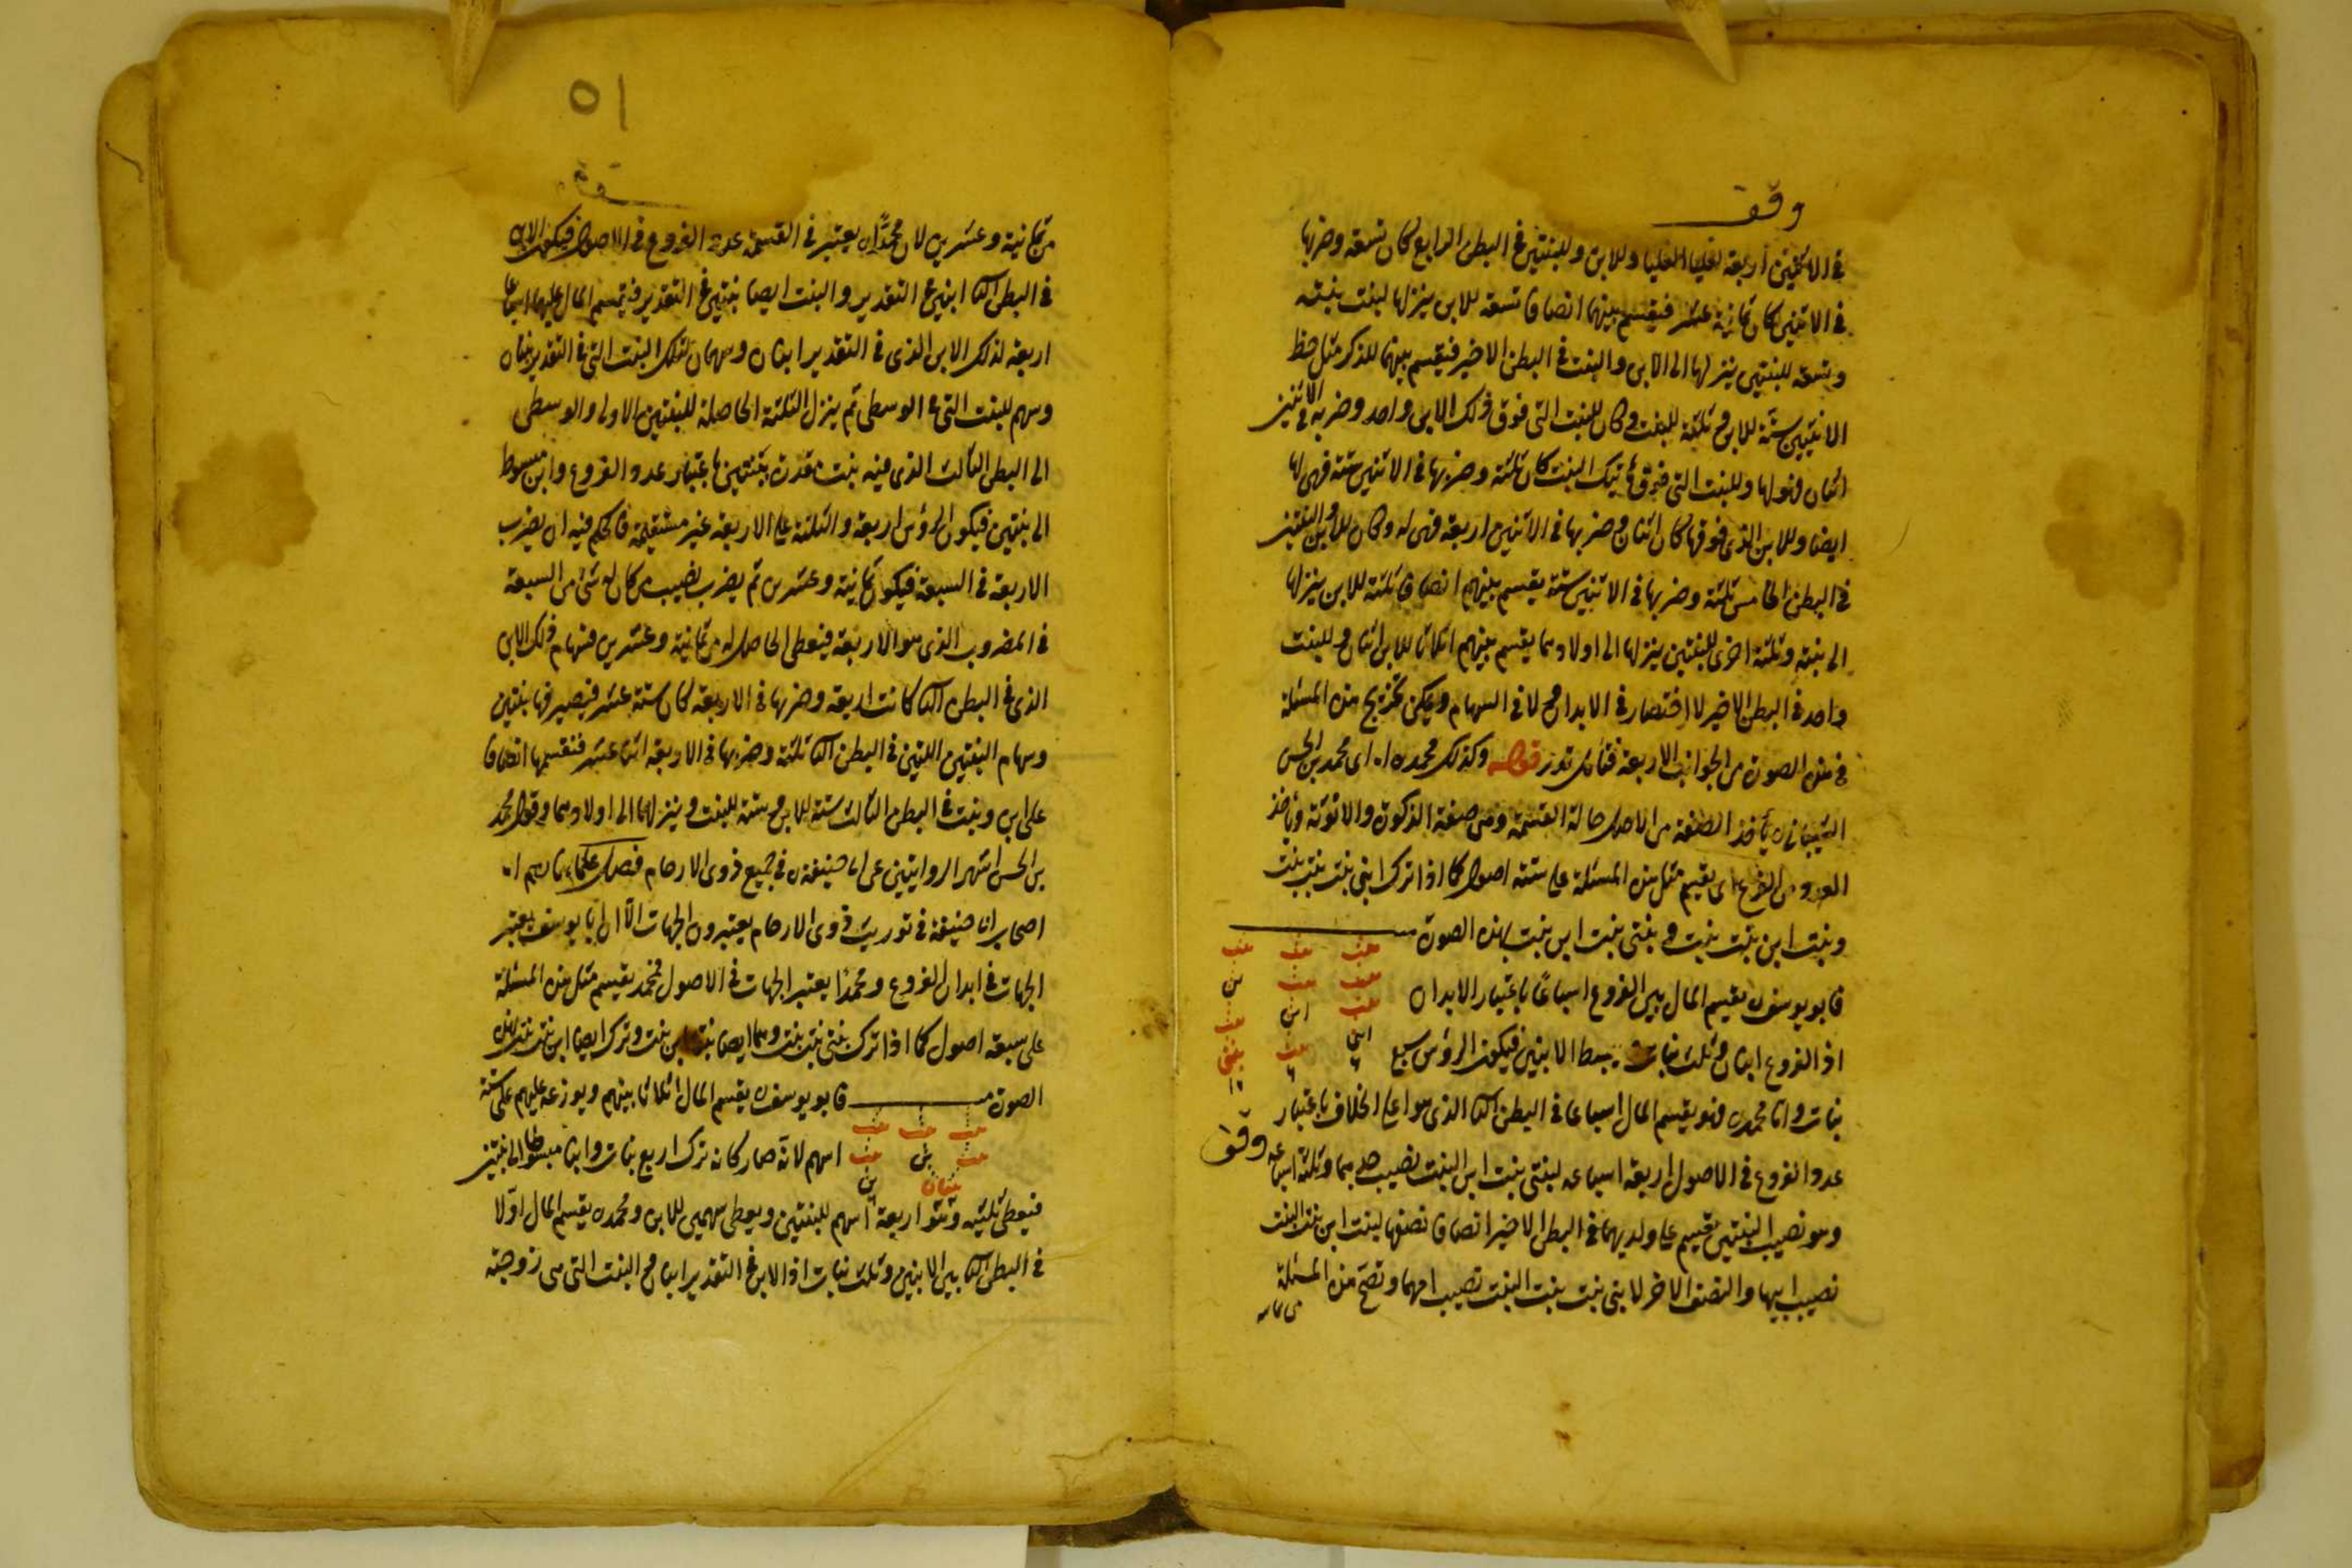 وقف
في الاثنين اربعة لعليا العليا وللابن وللبنتين في البطن الرابع كان تسعة وضربها
في الاثنين كان ثمانية عشر فيقسم بينهما انصافا تسعة للابن ينزلها لبنت بنته
وتسعة للبنتين ينزلها الى الابن والبنت في البطن الاخير فيقسم بينهما للذكر مثل حظ
الانثيين ستة للابن وثلثة للبنت وكان للبنت التي فوق ذلك الابن واحد وضربه في الاثنين
اثنان فهو لها وللبنت التي فوق هاتيك البنت كان ثلثة وضربها في الاثنين ستة فهي لها
ايضا وللابن الذي فوقها كان اثنان وضربها في الاثنين اربعة فهي له وكان للابن والبنتين
في البطن الخامس ثلثة وضربها في الاثنين ستة يقسم بينهم انصافا ثلثة للابن ينزلها
الى بنته وثلثة اخرى للبنتين ينزلها الى اولادهما يقسم بينهم اثلاثا للابن اثنان وللبنت
واحد في البطن الاخير لا اختصار في الابدان ولا في السهام ويمكن تخريج هذه المسئلة
في هذه الصورة من الجوانب الاربعة فتأمل تدر قوله وكذلك محمد ره اى محمد بن الحسن
الشيباني ره يأخذ الصفة من الاصل حالة القسمة وهي صفة الذكورة والانوثة ويأخذ
العدد من الفرع اى يقسم مثل هذه المسئلة على ستة اصول كما اذا ترك ابنى بنت بنت بنت
وبنت ابن بنت بنت وبنتى بنت ابن بنت بهذه الصورة
بنت بنت بنت
بنت بنت ابن
فابو يوسف ره يقسم المال بين الفروع اسباعا باعتبار الابدان
بنت ابن بنت
اذ الفروع ابنان وثلث بنات يبسط الابنين فيكون الرؤس سبع
ابنى بنت بنتى
بنات واما محمد ره فهو يقسم المال اسباعا في البطن الثا الذى هو اعلى الخلاف باعتبار
عدد الفروع في الاصول اربعة اسباعه لبنتى بنت ابن البنت نصيب جدهما وثلثة اسباعه
وقف
وهو نصيب البنتين يقسم على ولديهما في البطن الاخير انصافا نصفها لبنت ابن بنت البنت
نصيب ابيها والنصف الاخر لابنى بنت بنت البنت نصيب امهما وتصح هذه المسئلة
من ثمانيه
٥١
من ثمانية وعشرين لان محمدا ره يعتبر في القسمة عدد الفروع في الاصول فيكون الابن
في البطن الثا ابنين في التقدير والبنت ايضا بنتين في التقدير فيقسم المال عليهما اسباعا
اربعة لذلك الابن الذى في التقدير ابنان وسهمان لتلك البنت التى في التقدير بنتان
وسهم للبنت التى في الوسطى ثم ينزل الثلثة الحاصلة للبنتين الاولى والوسطى
الى البطن الثالث الذى فيه بنت مقدرة ببنتين باعتبار عدد الفروع وابن مبسوط
الى بنتين فيكون الرؤس اربعة والثلثة على الاربعة غير مستقيمة فالحكم فيه ان يضرب
الاربعة في السبعة فيكون ثمانية وعشرين ثم يضرب نصيب من كان له شئ من السبعة
في المضروب الذى هو الاربعة فيعطى الحاصل له من ثمانية وعشرين فسهام ذلك الابن
الذى في البطن الثا كانت اربعة وضربها في الاربعة كان ستة عشر فيصير فها بنتين
وسهام البنتين اللتين في البطن الثا ثلثة وضربها في الاربعة اثنا عشر فنقسمها انصافا
على ابن وبنت في البطن الثالث ستة للابن وستة للبنت وينزلها الى اولادهما وقول محمد
بن الحسن اشهر الروايتين عن ابى حنيفة ره في جميع ذوى الارحام فصل علماؤنا رحمهم الله
اصحاب ابى حنيفة في توريث ذوى الارحام يعتبرون الجهات الا ان ابا يوسف يعتبر
الجهات في ابدان الفروع ومحمدا يعتبر الجهات في الاصول فمحمد يقسم مثل هذه المسئلة
على سبعة اصول كما اذا ترك بنتى بنت بنت وهما ايضا بنتا ابن بنت وترك ايضا ابن بنت بنت بهذه
الصورة فابو يوسف ره يقسم المال اثلاثا بينهم ويوزعه عليهم على ستة
بنت بنت بنت
بنت بن بنت
اسهم لانه صار كانه ترك اربع بنات وابنا مبسوطا الى بنتين
بنتان بن
فيعطى ثلثيه وهو اربعة اسهم للبنتين ويعطى سهمين للابن ومحمد ره يقسم المال اولا
في البطن الثا بين الابنين وثلث بنات اذ الابن في التقدير ابنان والبنت التى هى زوجته